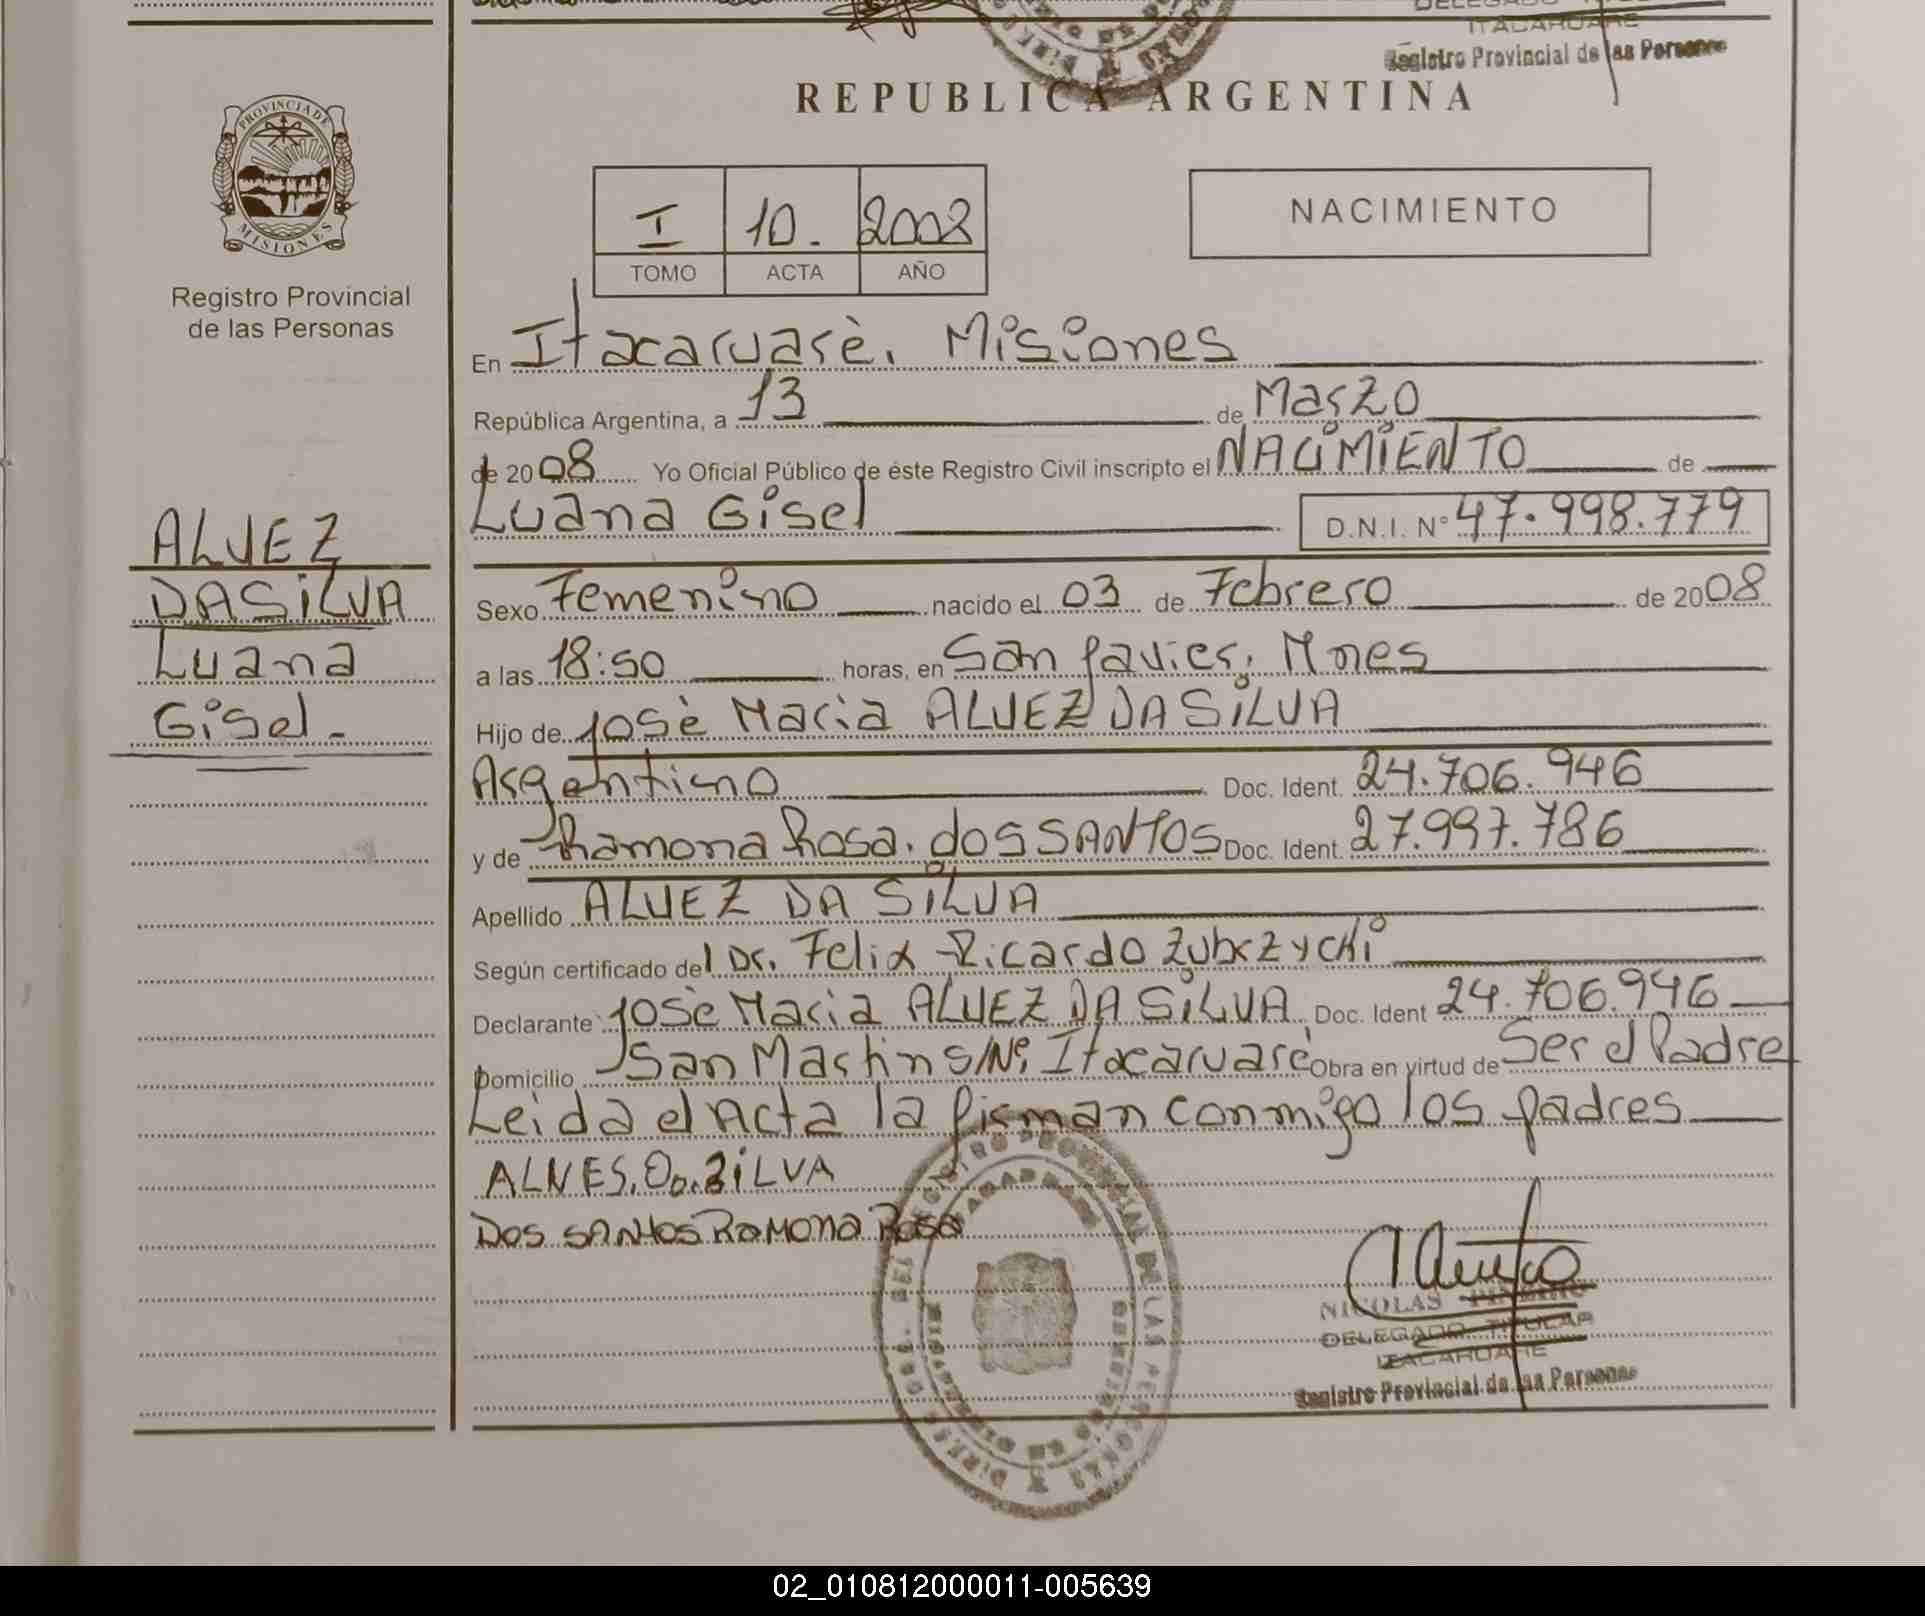 ITACARUARE
Registro Provincial de las Personas
REPUBLICA ARGENTINA
PROVINCIA DE
MISIONES
Registro Provincial
de las Personas
I 10. 2008
TOMO ACTA AÑO
NACIMIENTO
En Itacaruarè. Misiones
República Argentina, a 13 de Marzo
de 2008 Yo Oficial Público de éste Registro Civil inscripto el NACIMIENTO de
Luana Gisel D.N.I. Nº 47.998.779
ALVEZ
DASILVA
Luana
Gisel.-
Sexo Femenino nacido el 03 de Febrero de 2008
a las 18:50 horas, en San Javier. Mnes
Hijo de Josè Maria ALVEZ DA SILVA
Argentino Doc. Ident. 24.706.946
y de Ramona Rosa. dos SANTOS Doc. Ident. 27.997.786
Apellido ALVEZ DA SILVA
Según certificado del Dr. Felix Ricardo Zubrzycki
Declarante Josè Maria ALVEZ DA SILVA Doc. Ident 24.706.946
Domicilio San Martin S/Nº Itacaruarè Obra en virtud de Ser el Padre
Leida el Acta la firman conmigo los padres
ALVES. Da. SILVA
DOS SANTOS RAMONA ROSA
NICOLAS
DELEGADO TITULAR
ITACARUARE
Registro Provincial de las Personas
02_010812000011-005639